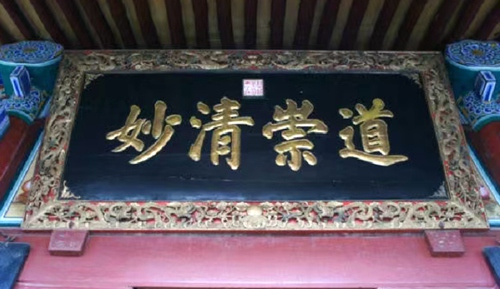 道崇清妙